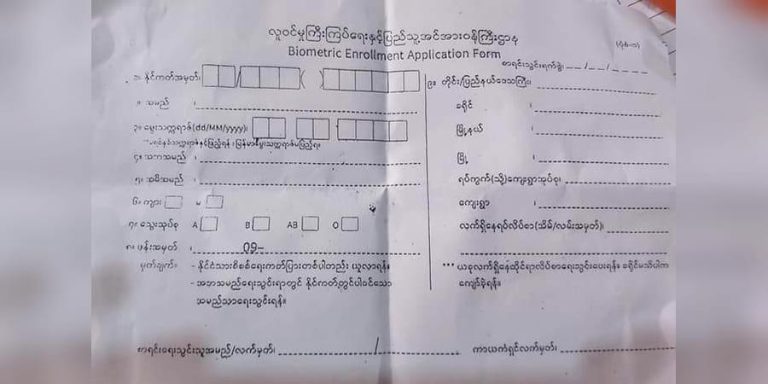 လူဝင်မှုကြီးကြပ်ရေးနှင့်ပြည်သူ့အင်အားဝန်ကြီးဌာန
Biometric Enrollment Application Form
စာရင်းသွင်းရက်စွဲ၊ __/__/____
၁။ နိုင်ငံကတ်အမှတ်၊ / ( )
၂။ အမည်
၃။ မွေးသက္ကရာဇ် (dd/MM/yyyy)၊
၄။ အဘအမည်
၅။ အမိအမည်
၆။ ကျား မ
၇။ သွေးအုပ်စု A B AB O
၈။ ဖုန်းအမှတ် 09-
မှတ်ချက်။ - နိုင်ငံသားစိစစ်ရေးကတ်ပြားတစ်ပါတည်း ယူလာရန်။
- အဘအမည်ရေးသွင်းရာတွင် နိုင်ငံကတ်တွင်ပါဝင်သော
အမည်သာရေးသွင်းရန်။
၉။ တိုင်း/ပြည်နယ်ဒေသကြီး၊
ခရိုင်
မြို့နယ်
မြို့
ရပ်ကွက်(သို့)ကျေးရွာအုပ်စု၊
ကျေးရွာ
လက်ရှိနေရပ်လိပ်စာ(အိမ်/လမ်းအမှတ်)၊
*** ယခုလက်ရှိနေထိုင်ရာလိပ်စာရေးသွင်းပေးရန်။ ခရိုင်မသိပါက
ကျော်ခဲ့ရန်။
စာရင်းရေးသွင်းသူအမည်/လက်မှတ်၊ /
ကာယကံရှင်လက်မှတ်၊